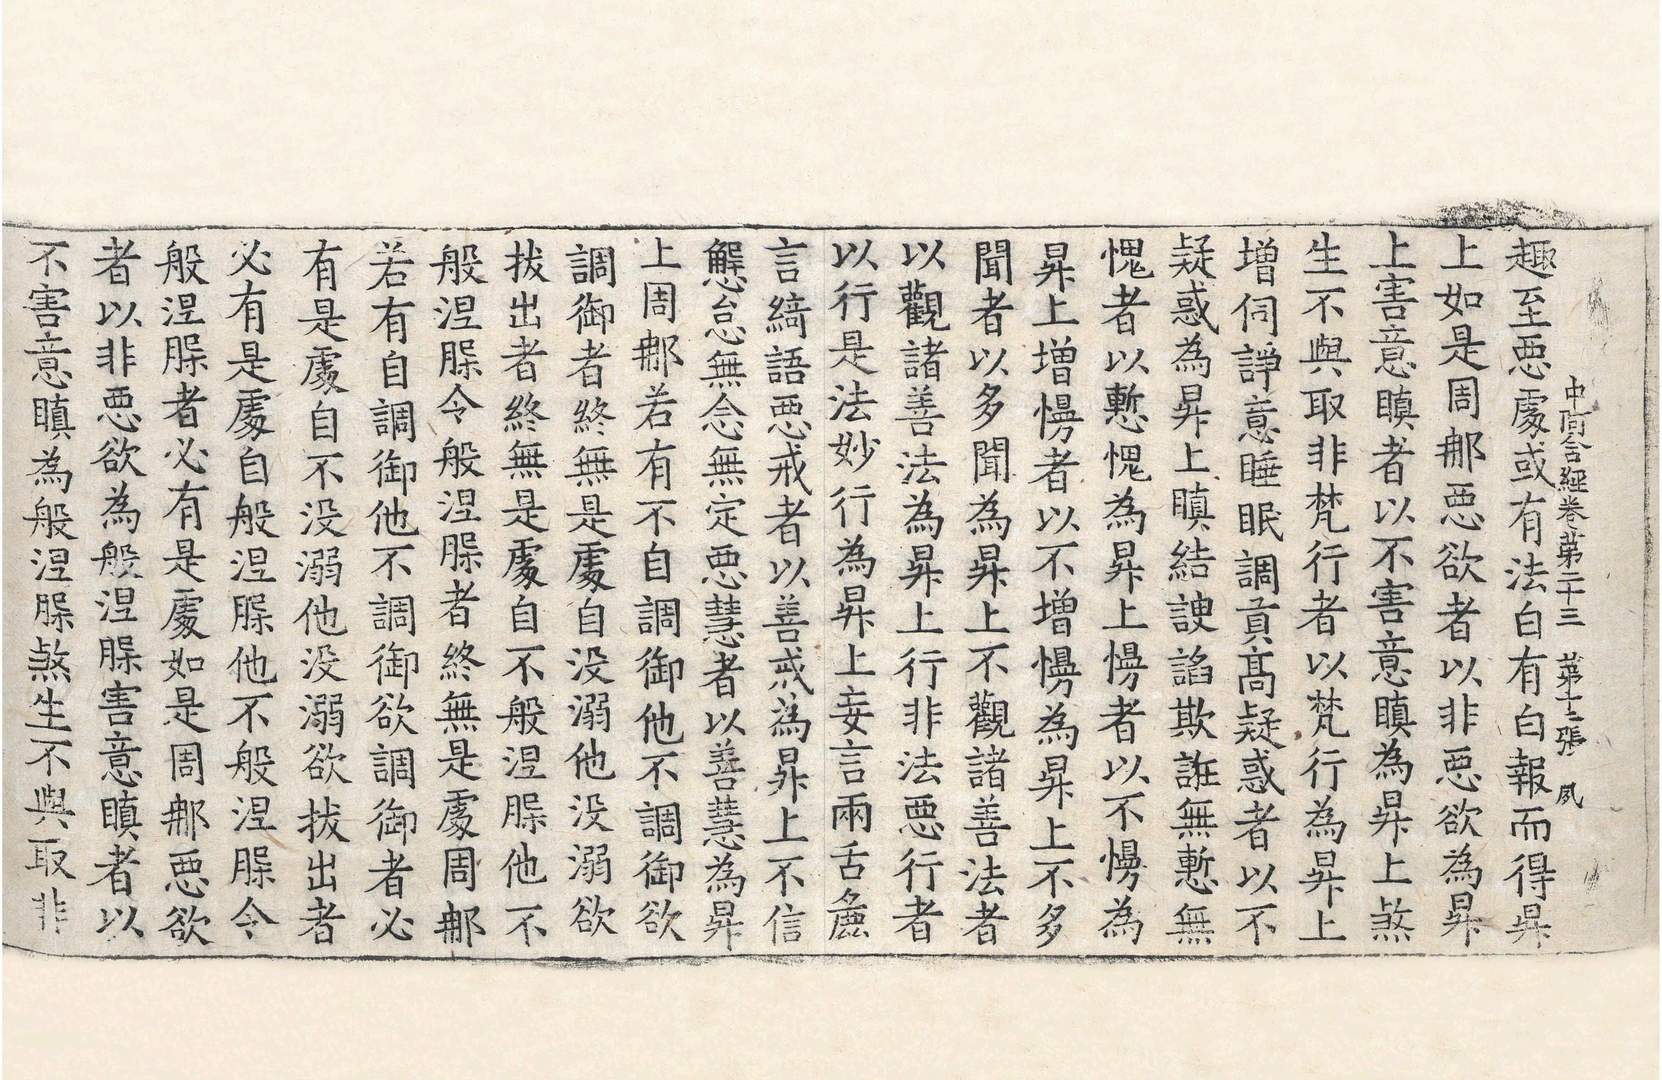 中阿含経卷苐二十三　苐十二張　夙
趣至惡處或有法白有白報而得昇
上如是周郍惡欲者以非惡欲為昇
上害意瞋者以不害意瞋為昇上煞
生不與取非梵行者以梵行為昇上
增伺諍意睡眠調貢髙疑惑者以不
疑惑為昇上瞋結諛諂欺誑無慙無
愧者以慙愧為昇上慢者以不慢為
昇上增慢者以不增慢為昇上不多
聞者以多聞為昇上不觀諸善法者
以觀諸善法為昇上行非法惡行者
以行是法妙行為昇上妄言兩舌麁
言綺語惡戒者以善戒為昇上不信
懈怠無念無定惡慧者以善慧為昇
上周郍若有不自調御他不調御欲
調御者終無是處自没溺他没溺欲
拔出者終無是處自不般涅槃他不
般涅槃令般涅槃者終無是處周郍
若有自調御他不調御欲調御者必
有是處自不没溺他没溺欲拔出者
必有是處自般涅槃他不般涅槃令
般涅槃者必有是處如是周郍惡欲
者以非惡欲為般涅槃害意瞋者以
不害意瞋為般涅槃煞生不與取非